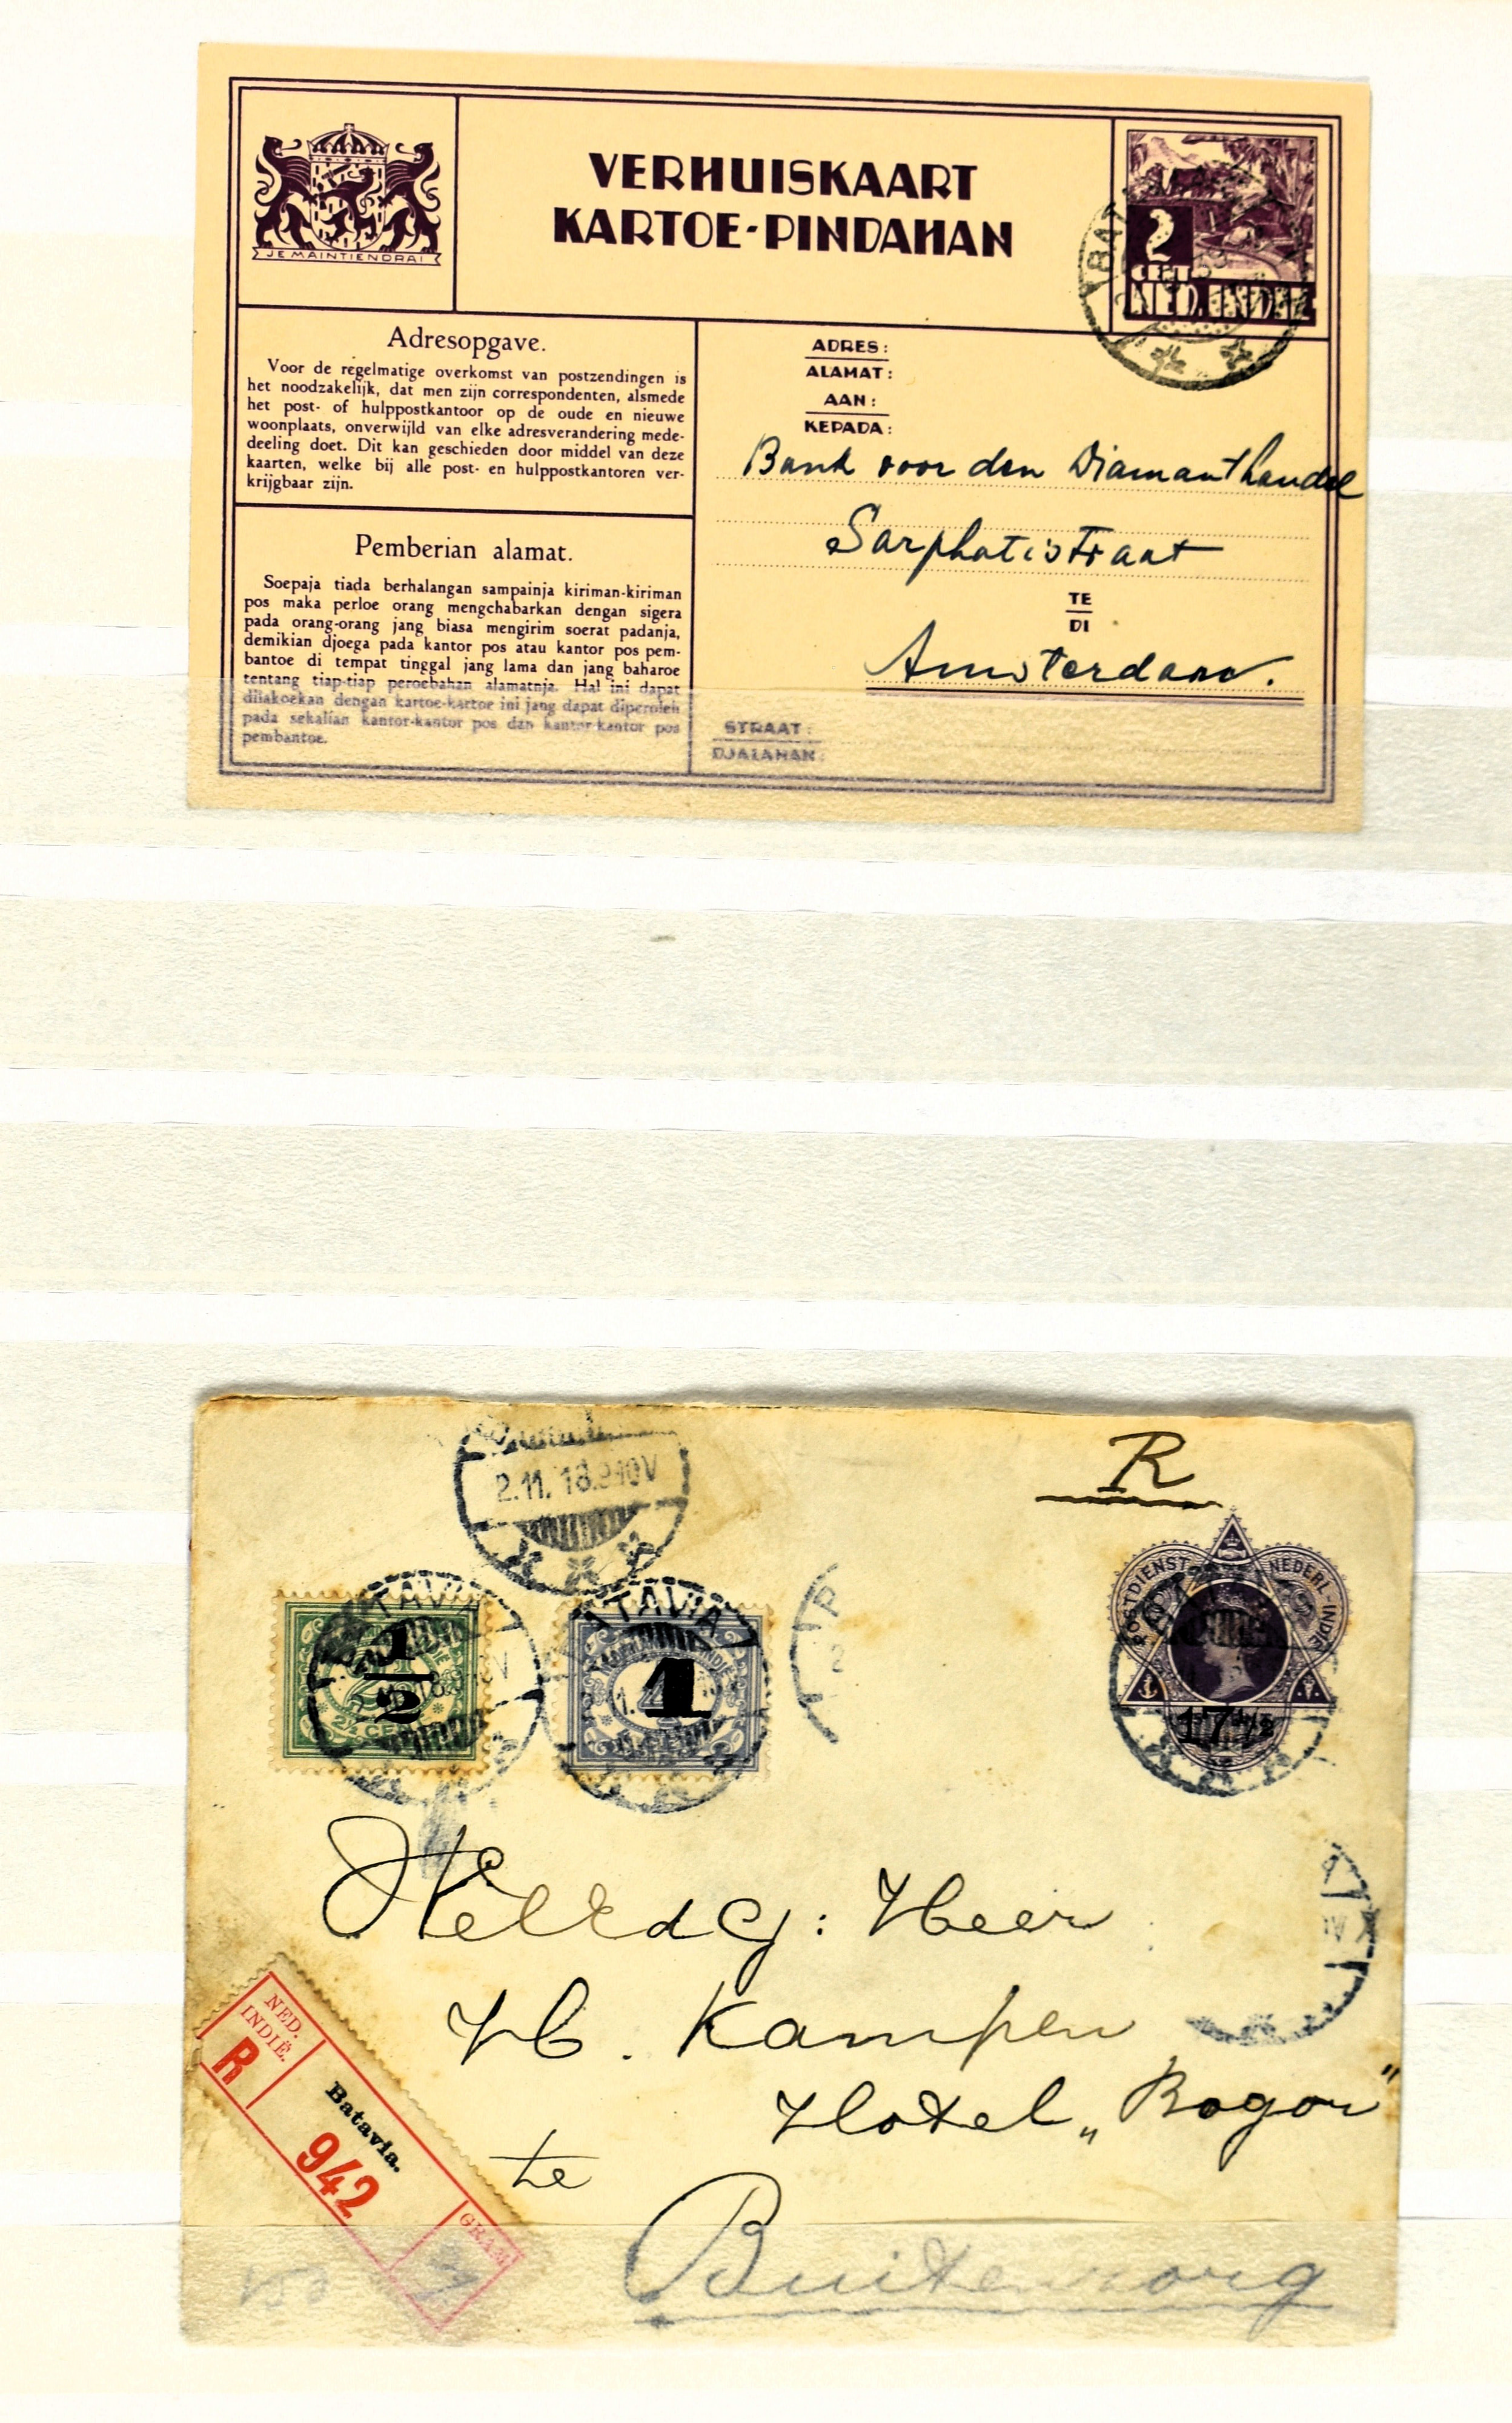 JE MAINTIENDRAI
VERHUISKAART
KARTOE-PINDAHAN
2
CENT
NED. INDIE
BAT
Adresopgave.
Voor de regelmatige overkomst van postzendingen is
het noodzakelijk, dat men zijn correspondenten, alsmede
het post- of hulppostkantoor op de oude en nieuwe
woonplaats, onverwijld van elke adresverandering mede-
deeling doet. Dit kan geschieden door middel van deze
kaarten, welke bij alle post- en hulppostkantoren ver-
krijgbaar zijn.
Pemberian alamat.
Soepaja tiada berhalangan sampainja kiriman-kiriman
pos maka perloe orang mengchabarkan dengan sigera
pada orang-orang jang biasa mengirim soerat padanja,
demikian djoega pada kantor pos atau kantor pos pem-
bantoe di tempat tinggal jang lama dan jang baharoe
tentang tiap-tiap peroebahan alamatnja. Hal ini dapat
dilakoekan dengan kartoe-kartoe ini jang dapat diperoleh
pada sekalian kantor-kantor pos dan kantor-kantor pos
pembantoe.
ADRES:
ALAMAT:
AAN:
KEPADA:
Bank voor den Diamanthandel
Sarphatistraat
TE
DI
Amsterdam.
STRAAT:
DJALANAN:
R
2.11.18.
POSTDIENST NEDERL-INDIE
17½
1/2
2½ CENT
BATAVIA
1
BATAVIA
WelEdG: Heer
H. Kampen
Hotel „Bogor"
te
Buitenzorg
NED.
INDIË.
R
Batavia.
942
GRAM